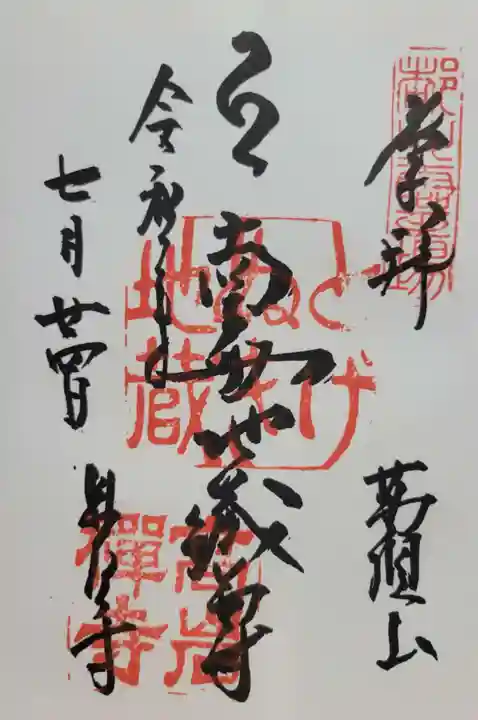 奉拝
萬頂山
南無地蔵尊
令和
七月廿四日
高岩寺
とげぬき地蔵
高岩禪寺